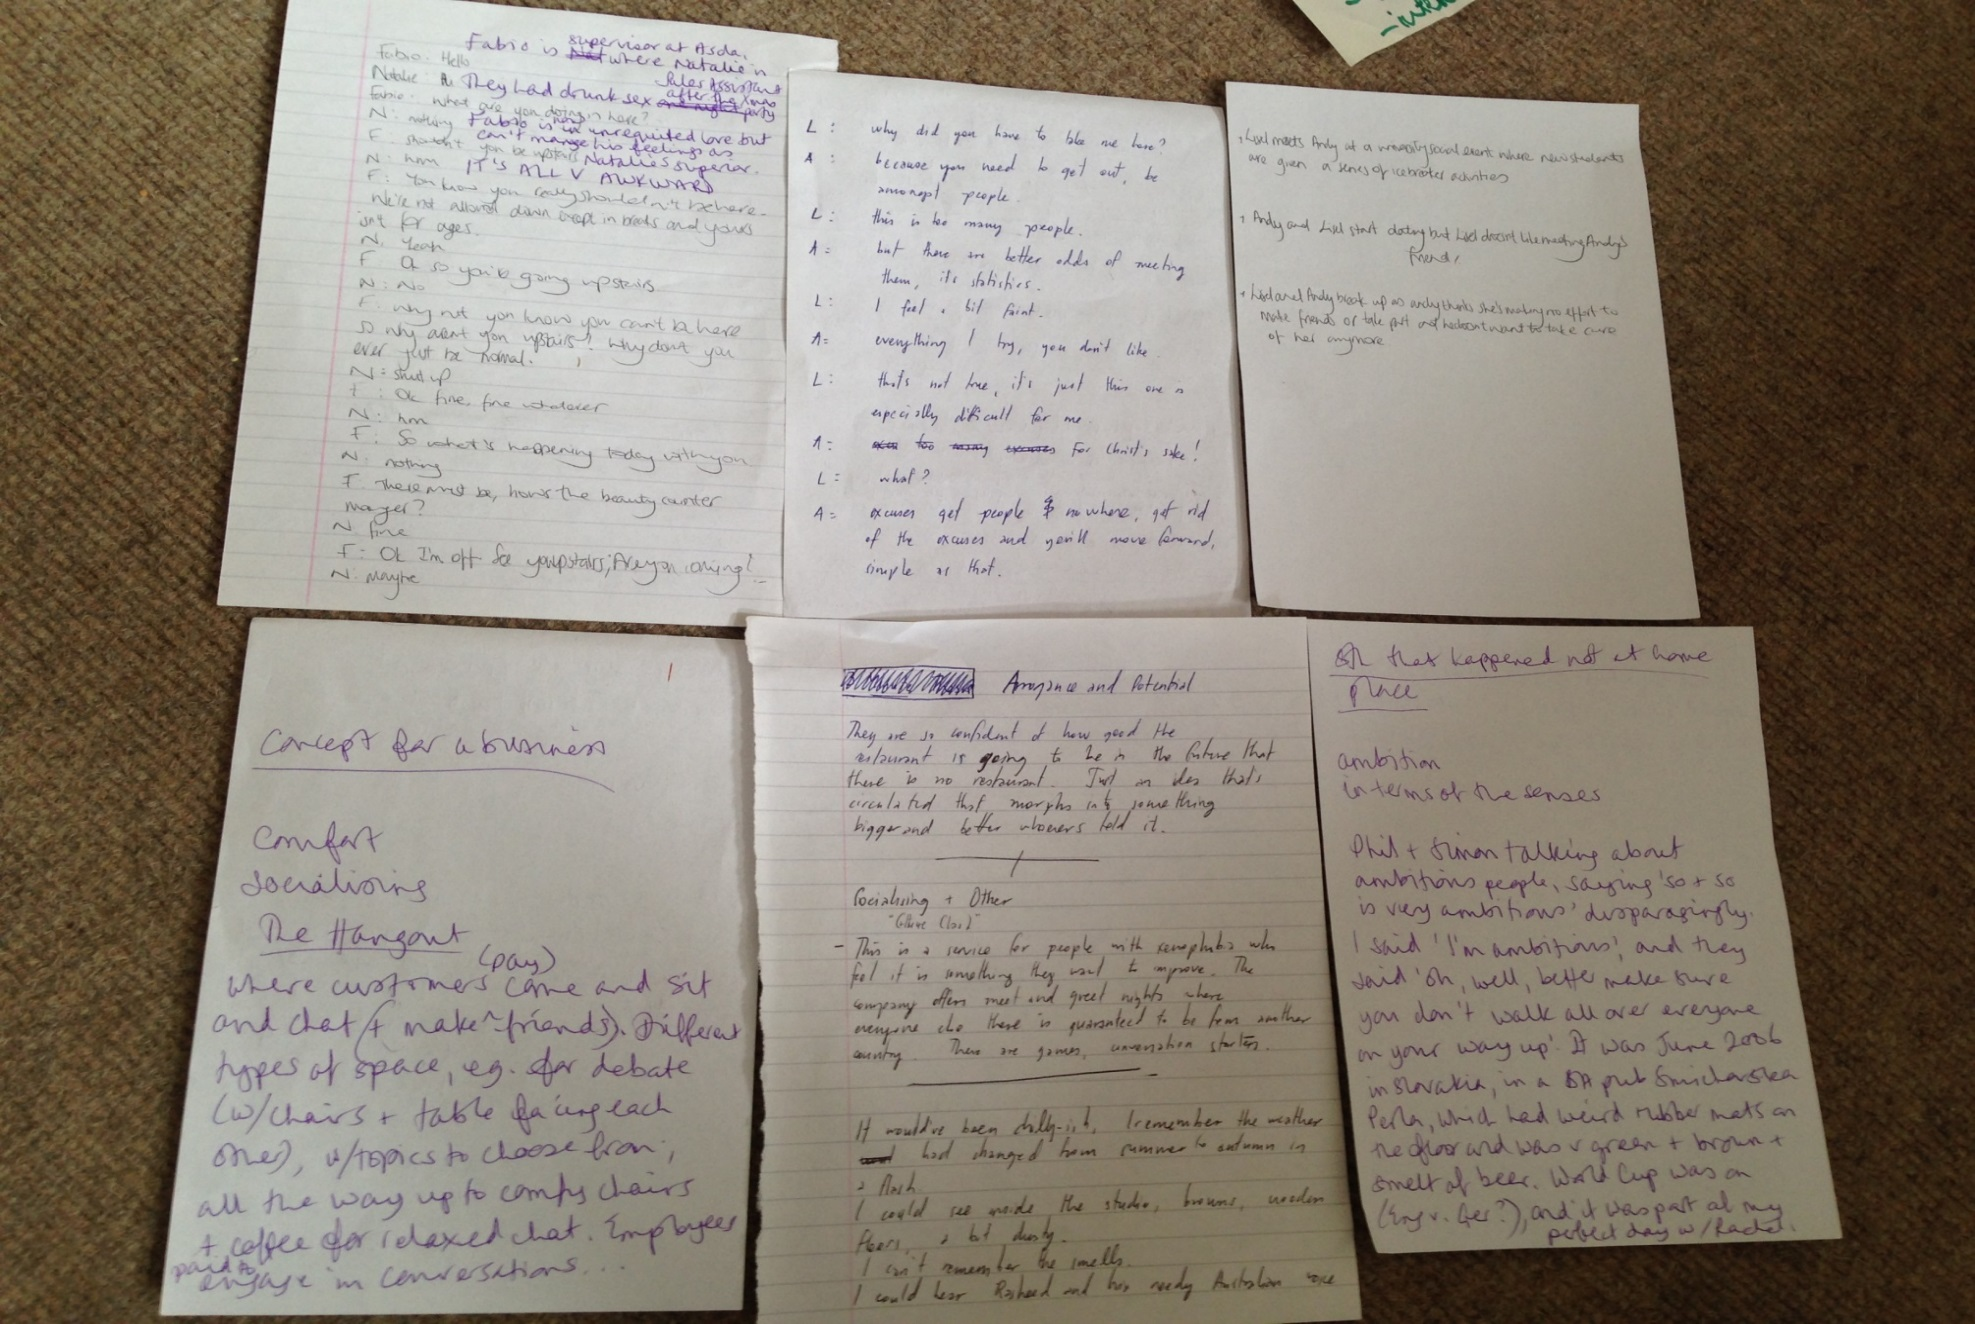 Fabio is supervisor at Asda,
Not where Natalie is
Sales Assistant
They had drunk sex one night after the Xmas party
Fabio is now in unrequited love but
can't manage his feelings as
Natalie's superior.
IT'S ALL V AWKWARD
Fabio: Hello
Natalie: Hi
Fabio: what are you doing in here?
N: nothing
F: shouldn't you be upstairs
N: hm
F: You know you really shouldn't be here.
We're not allowed down except in breaks and yours
isnt for ages.
N: Yeah
F: Ok so you're going upstairs
N: No
F: why not you know you can't be here
so why arent you upstairs? Why dont you
ever just be normal.
N: shut up
F: Ok fine, fine whatever
N: hm
F: So what's happening today with you
N: nothing
F: There must be, how's the beauty counter
manger?
N fine
F: Ok I'm off see you upstairs, Are you coming?
N: maybe
L: why did you have to take me here?
A: because you need to get out, be
amongst people.
L: this is too many people.
A: but there are better odds of meeting
them, it's statistics.
L: I feel a bit faint.
A: everything I try, you don't like.
L: that's not true, it's just this one is
especially difficult for me.
A: too many excuses For Christ's sake!
L: what?
A: excuses get people nowhere, get rid
of the excuses and you'll move forward,
simple as that.
Lisel meets Andy at a university social event where new students
are given a series of icebreaker activities
Andy and Lisel start dating but Lisel doesnt like meeting Andy's
friends
Lisel and Andy break up as andy thinks she's making no effort to
make friends or take part and he doesnt want to take care
of her anymore
Concept for a business
Comfort
Socialising
The Hangout
where customers (pay) come and sit
and chat (+ make friends). Different
types of space, eg. for debate
(w/chairs + table facing each
other), w/topics to choose from,
all the way up to comfy chairs
+ coffee for relaxed chat. Employees
paid to engage in conversations...
Arrogance and Potential
They are so confident of how good the
restaurant is going to be in the future that
there is no restaurant. Just an idea that's
circulated that morphs into something
bigger and better whoever's told it.
Socialising + Other
- This is a service for people with xenophobia who
feel it is something they want to improve. The
company offers meet and greet nights where
everyone else there is guaranteed to be from another
country. There are games, conversation starters.
It would've been chilly-ish, I remember the weather
had changed from summer to autumn in
a flash
I could see inside the studio, browns, wooden
floors, a bit dusty.
I can't remember the smells.
I could hear Rasheed and his needy Australian voice
Sth that happened not at home
place
ambition
in terms of the senses
Phil + Simon talking about
ambitious people, saying 'so + so
is very ambitious' disparagingly.
I said 'I'm ambitious', and they
said 'oh, well, better make sure
you don't walk all over everyone
on your way up'. It was June 2006
in Slovakia, in a BA pub Smichovska
Perla, which had weird rubber mats on
the floor and was v green + brown +
smelt of beer. World Cup was on
(Eng v. Ger?), and it was part of my
perfect day w/ Rachel.